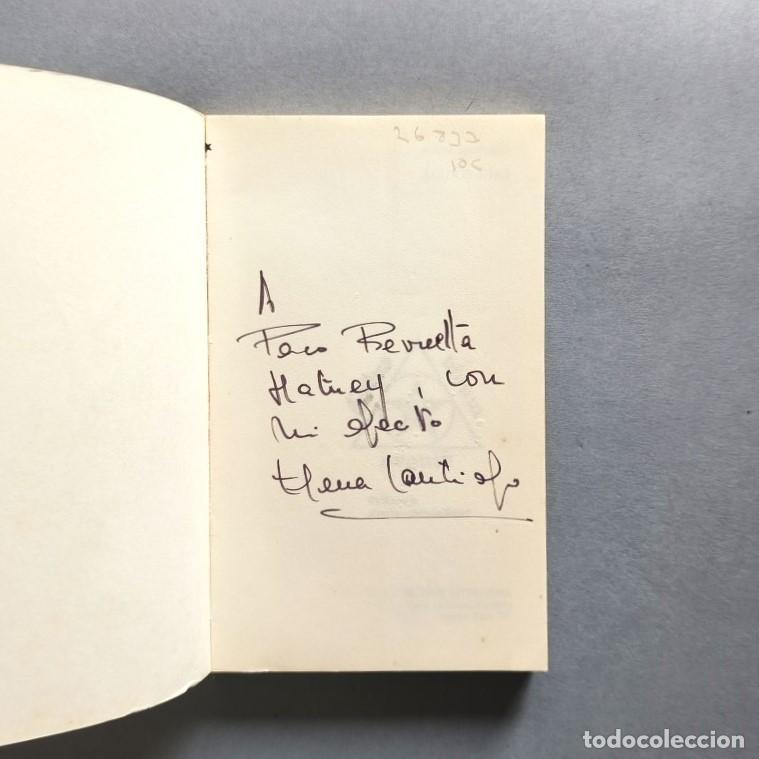 A
Paco Revuelta
Hatuey, con
mi afecto
Elena Santiago
todocoleccion